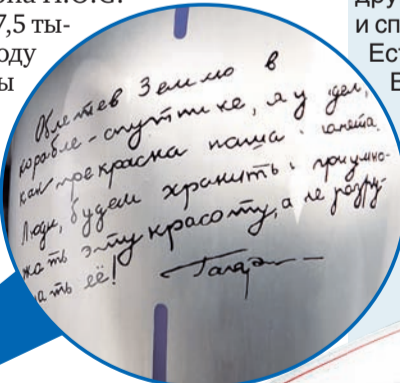 7,5 ты-
оду
ы
дру
и сп
Ест
Облетев Землю в
корабле-спутнике, я увидел,
как прекрасна наша планета.
Люди, будем хранить и приумно-
жать эту красоту, а не разру-
шать её!
Гагарин